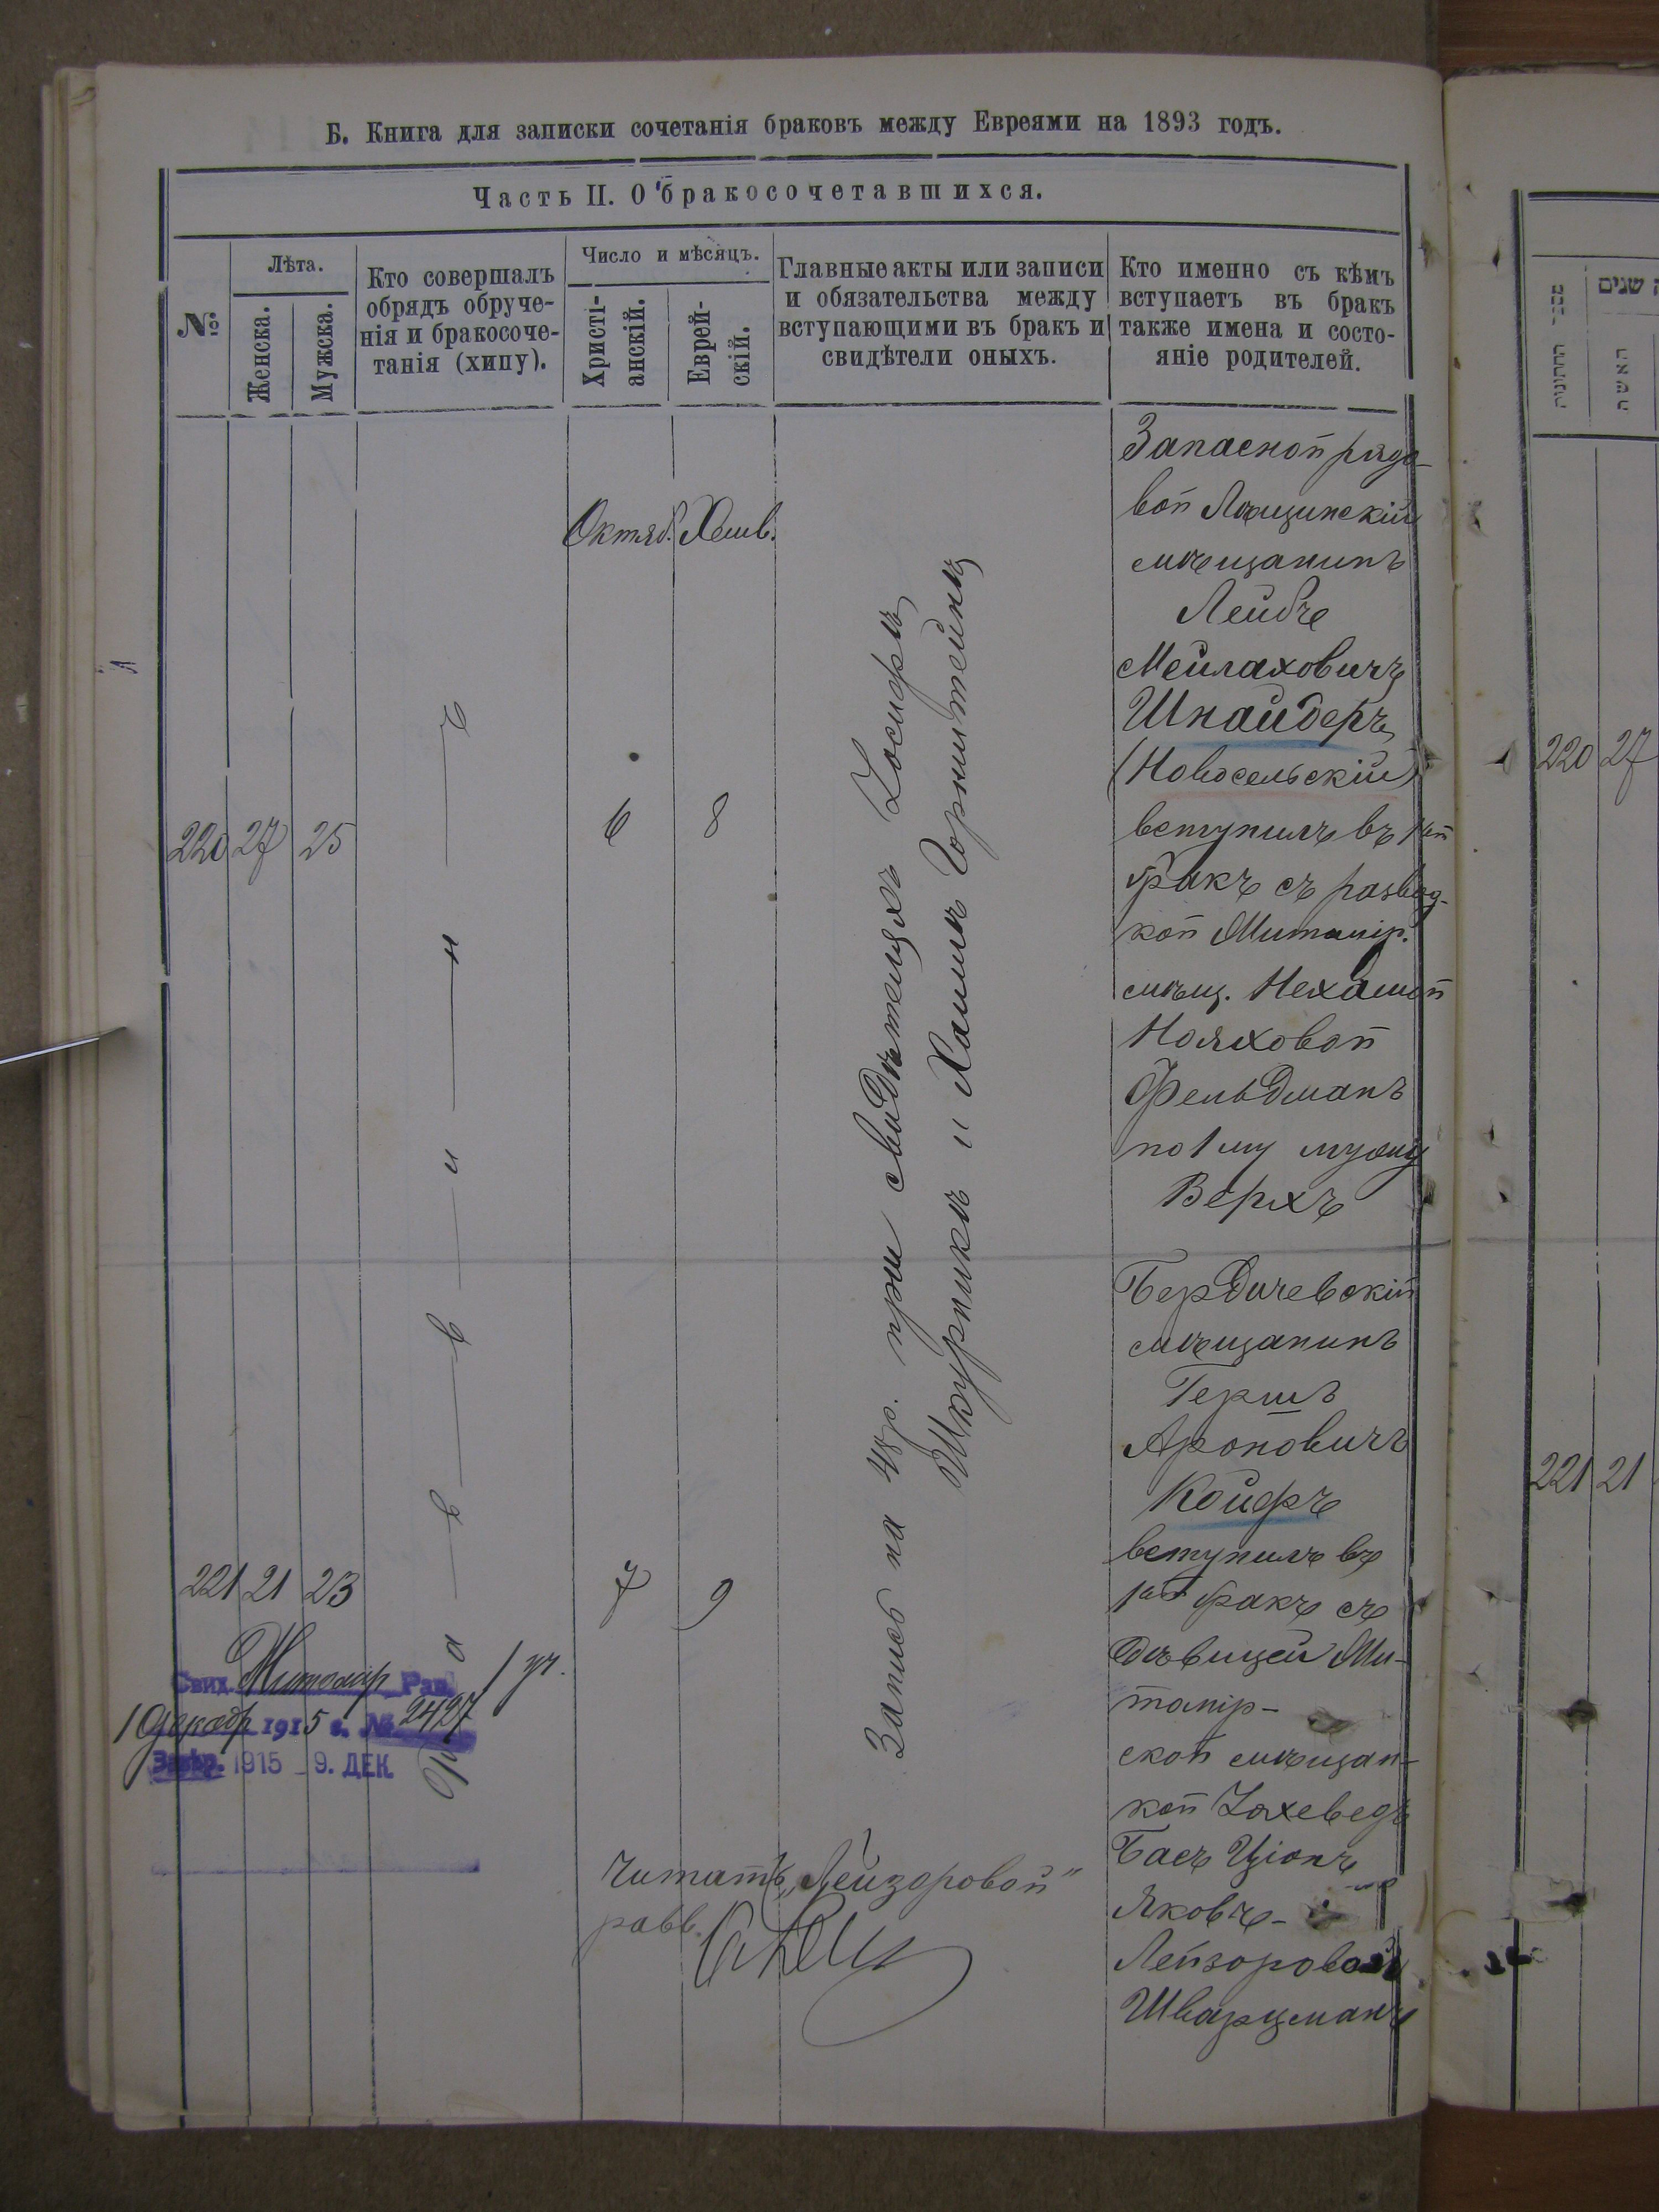 Б. Книга для записки сочетанія браковъ между Евреями на 1893 годъ.
Часть II. О бракосочетавшихся.
№
Лѣта.
Женска.
Мужска.
Кто совершалъ
обрядъ обруче-
нія и бракосоче-
танія (хипу).
Число и мѣсяцъ.
Христі-
анскій.
Еврей-
скій.
Главные акты или записи
и обязательства между
вступающими въ бракъ и
свидѣтели оныхъ.
Кто именно съ кѣмъ
вступаетъ въ бракъ
также имена и состо-
яніе родителей.
Октяб. Хешв.
220 27 25
Р а в в и н ъ
6 8
Запись на 48 р. при свидѣтеляхъ Іосифъ
Шкурникъ и Хаимъ Горнштейнъ
Запасной рядо-
вой
мѣщанинъ
Лейбъ
Мейлаховичъ
Шнайдеръ
(Новосельскій)
вступилъ въ 1ый
бракъ съ развед-
кой Житомір.
мѣщ. Нехамой
Нояховой
Фельдманъ
по 1му мужу
Верхъ
221 21 23
7 9
Бердичевскій
мѣщанинъ
Гершъ
Ароновичъ
Койфъ
вступилъ въ
1ый бракъ съ
дѣвицей Жи-
томір-
ской мѣщан-
кой Іохеведъ
Басъ Ціонъ
Яковъ-
Лейзоровой
Шварцманъ
Свид. Житомір Рав. 1 уч.
10 декабр 1915 г. № 2427
Завѣр. 1915 9. ДЕК.
Читать „Лейзоровой“
равв.
מספר החתונות
שנים
האשה
220 27
221 21